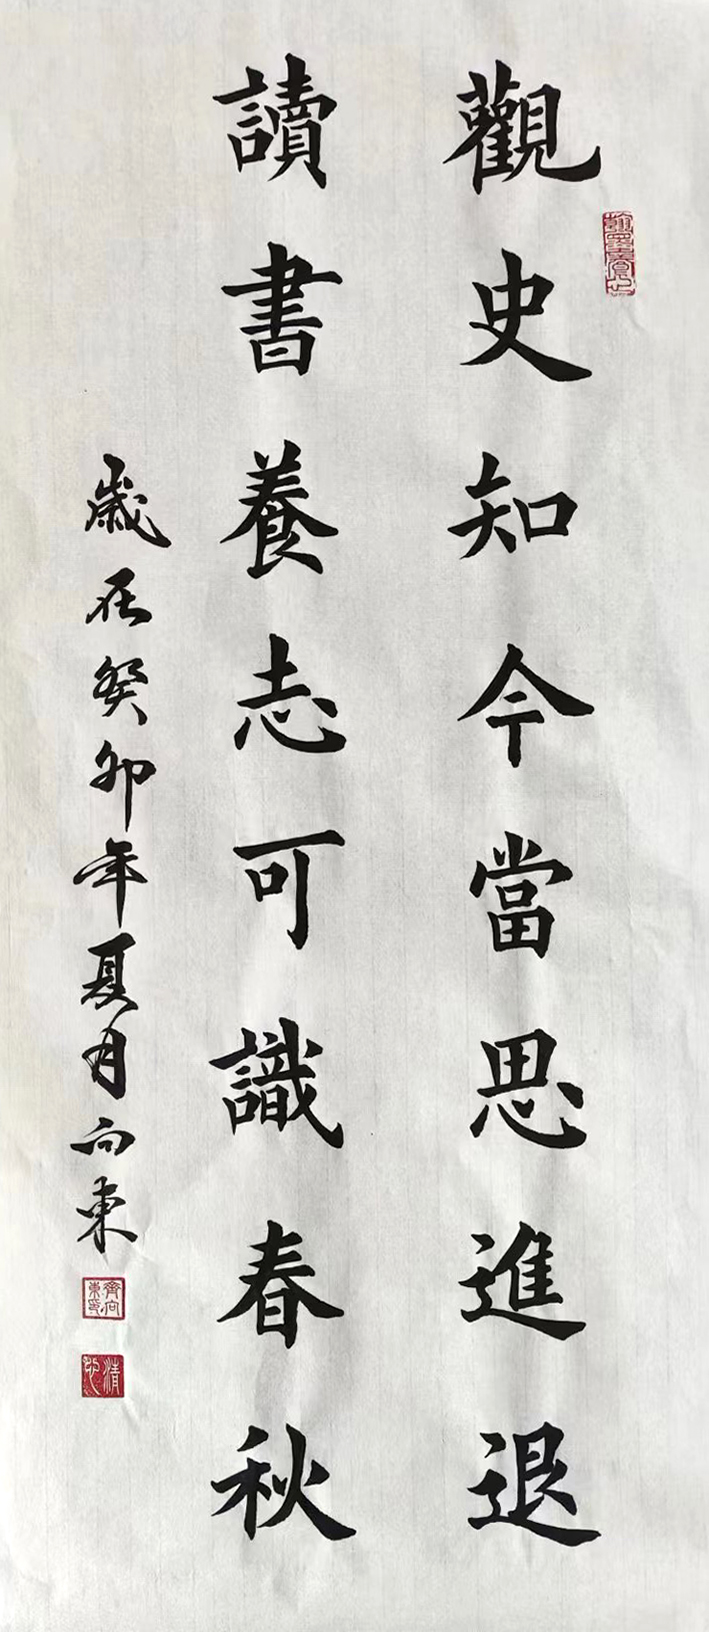 觀史知今當思進退
讀書養志可識春秋
歲在癸卯年夏月向東
齊向東印